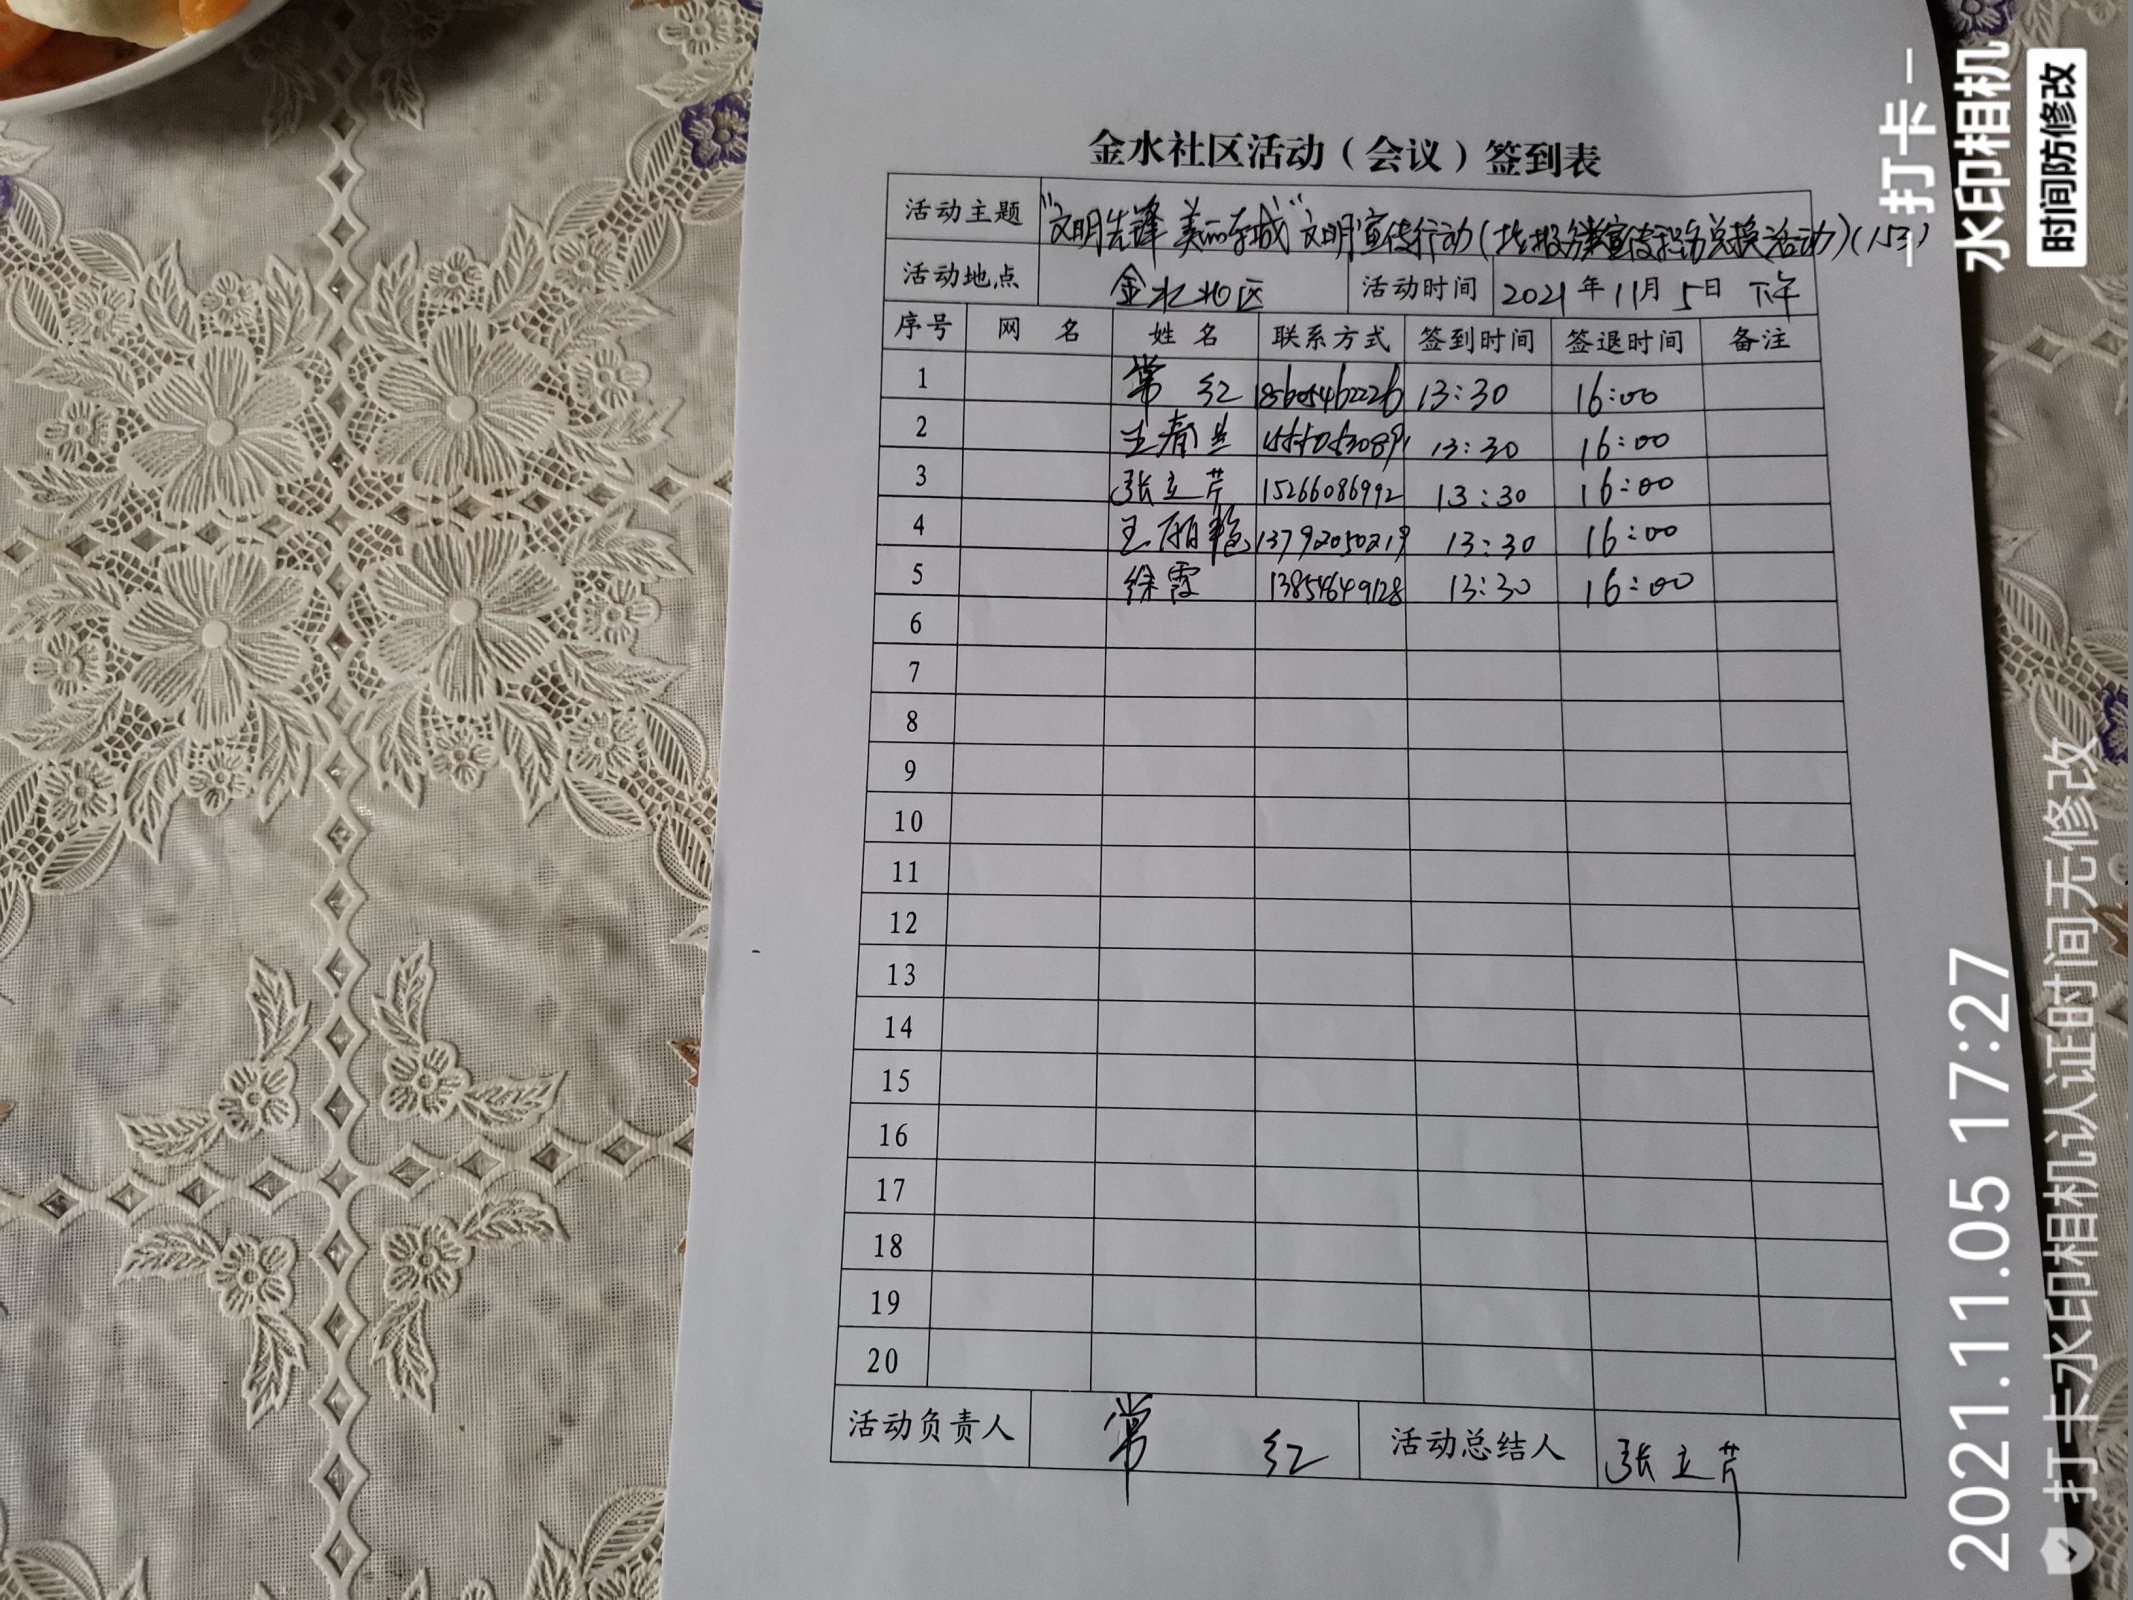 金水社区活动（会议）签到表
活动主题 "文明先锋 美丽东城"文明宣传行动(垃圾分类宣传积分兑换活动)(153)
活动地点 金水社区 活动时间 2021年11月5日 下午
序号 网 名 姓 名 联系方式 签到时间 签退时间 备注
1 常 红 18605462226 13:30 16:00
2 王春兰 13:30 16:00
3 张立芹 15266086992 13:30 16:00
4 王丽艳 13792050219 13:30 16:00
5 徐霞 13854649128 13:30 16:00
6
7
8
9
10
11
12
13
14
15
16
17
18
19
20
活动负责人 常 红 活动总结人 张立芹
打卡
水印相机
时间防修改
2021.11.05 17:27
打卡水印相机认证时间无修改